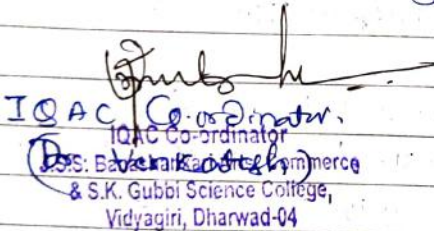 IQAC Co-ordinator.
IQAC Co-ordinator
(Dr. Venkatesh)
J.S.S: Commerce
& S.K. Gubbi Science College,
Vidyagiri, Dharwad-04